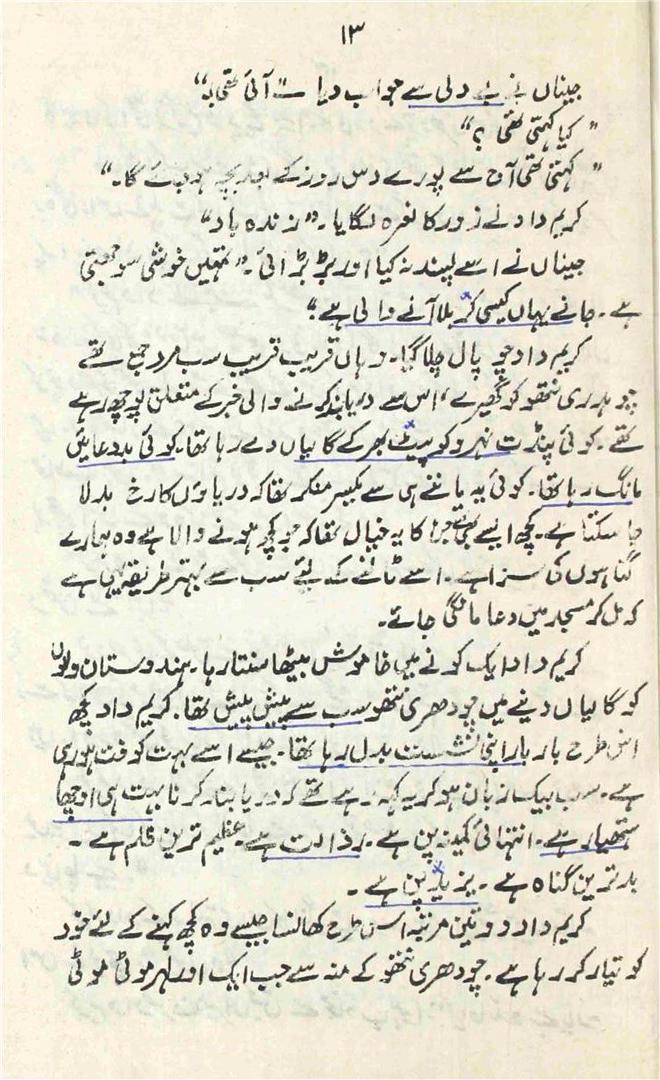 ۱۳
جیناں نے بے دلی سے جواب دیا ۔ "آئی تھی۔"
"کیا کہتی تھی؟"
"کہتی تھی آج سے پورے دس روز کے بعد بچہ ہو جائے گا۔"
کریم داد نے زور کا نعرہ لگایا۔ "زندہ باد"
جیناں نے اسے پسند نہ کیا اور بڑبڑائی۔ "تمہیں خوشی سوجھتی
ہے۔ جانے یہاں کیسی کربلا آنے والی ہے"
کریم داد چوپال چلا گیا۔ وہاں قریب قریب سب مرد جمع تھے
چوہدری نتھو کو گھیرے، اس سے دریا بند کرنے والی خبر کے متعلق پوچھ رہے
تھے۔ کوئی پنڈت نہرو کو پیٹ بھر کے گالیاں دے رہا تھا۔ کوئی بددعائیں
مانگ رہا تھا۔ کوئی یہ ماننے ہی سے یکسر منکر تھا کہ دریاؤں کا رخ بدلا
جا سکتا ہے۔ کچھ ایسے بھی تھے جن کا یہ خیال تھا کہ جو کچھ ہونے والا ہے وہ ہمارے
گناہوں کی سزا ہے۔ اسے ٹالنے کے لئے سب سے بہتر طریقہ یہی ہے
کہ مل کر مسجد میں دعا مانگی جائے۔
کریم داد ایک کونے میں خاموش بیٹھا سنتا رہا۔ ہندوستان والوں
کو گالیاں دینے میں چودھری نتھو سب سے پیش پیش تھا۔ کریم داد کچھ
اس طرح بار بار اپنی نشست بدل رہا تھا۔ جیسے اسے بہت کوفت ہو رہی
ہے۔ سب بیک زبان ہو کر یہ کہہ رہے تھے کہ دریا بند کرنا بہت ہی اوچھا
ہتھیار ہے۔ انتہائی کمینہ پن ہے۔ رذالت ہے۔ عظیم ترین ظلم ہے۔
بدترین گناہ ہے۔ یزید پن ہے۔
کریم داد دو تین مرتبہ اس طرح کھانسا جیسے وہ کچھ کہنے کے لئے خود
کو تیار کر رہا ہے۔ چودھری نتھو کے منہ سے جب ایک اور لہر موٹی موٹی